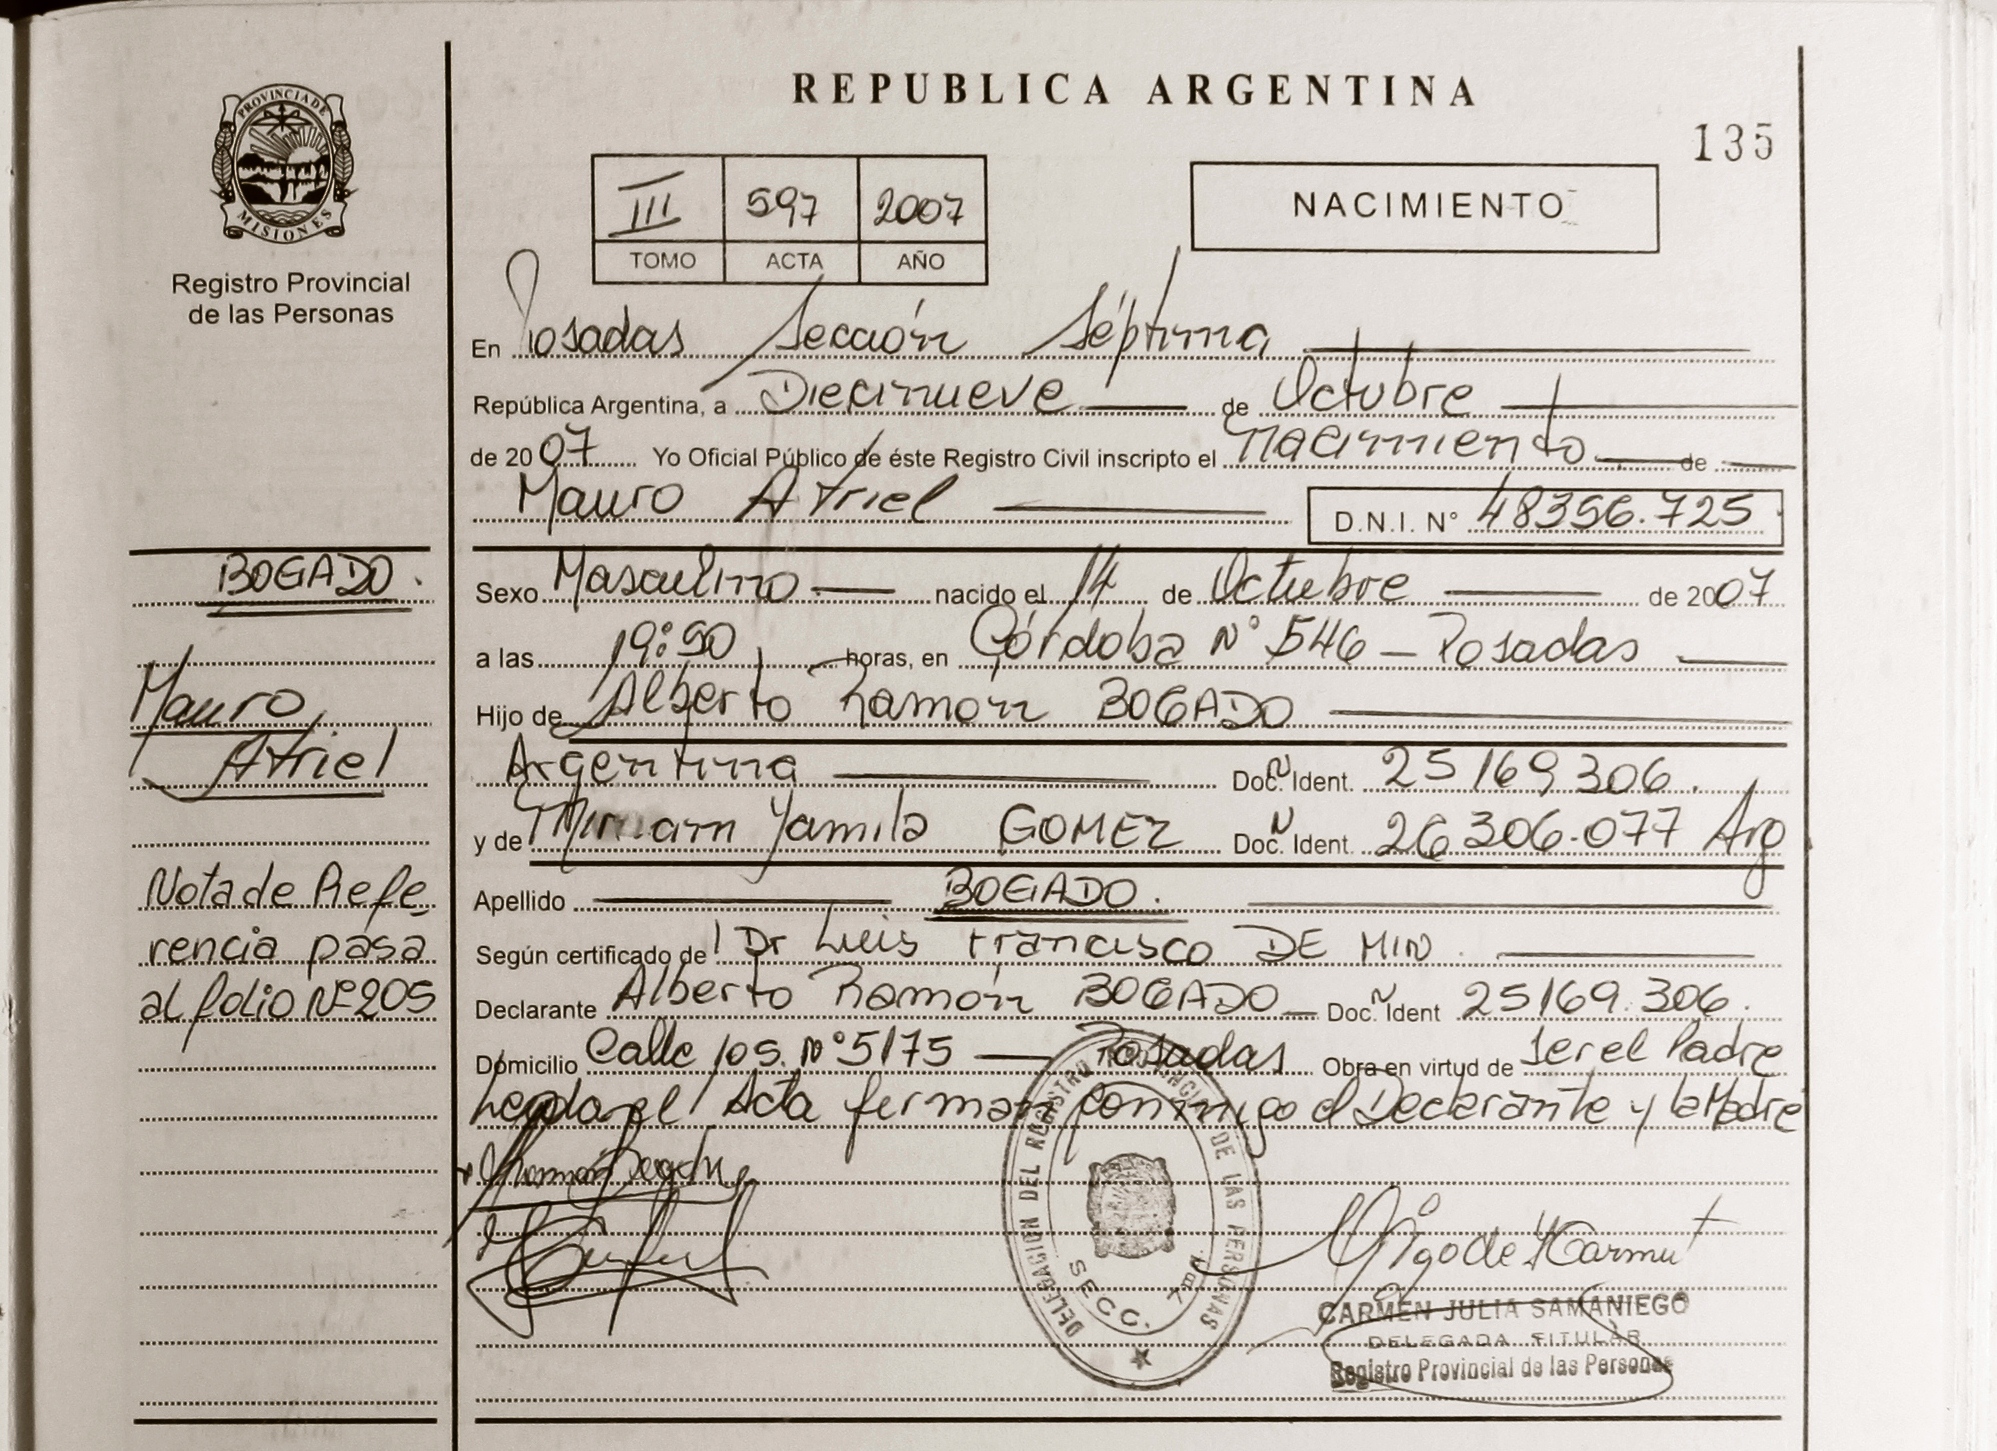 PROVINCIA DE
MISIONES
Registro Provincial
de las Personas
REPUBLICA ARGENTINA
135
III 597 2007
TOMO ACTA AÑO
NACIMIENTO
En Posadas Sección Séptima
República Argentina, a Diecinueve de Octubre
de 2007 Yo Oficial Público de éste Registro Civil inscripto el Nacimiento de
Mauro Atriel D.N.I. N° 48356.725
Sexo Masculino nacido el 14 de Octubre de 2007
a las 19:50 horas, en Córdoba N° 546 - Posadas
Hijo de Alberto Ramón BOGADO
Argentina Doc. N Ident. 25169306.
y de Miriam Yamila GOMEZ Doc. N Ident. 26306.077 Arg
Apellido BOGADO.
Según certificado del Dr Luis Francisco DE MIN.
Declarante Alberto Ramón BOGADO Doc. N Ident 25169.306.
Domicilio Calle 105. N° 5175 Posadas Obra en virtud de Ser el Padre
Leyda el Acta ferman conmigo el Declarante y la Madre
BOGADO.
Mauro
Atriel
Nota de Refe-
rencia pasa
al folio N° 205
DELEGACION DEL REGISTRO PROVINCIAL DE LAS PERSONAS
SECC. 7ma
CARMEN JULIA SAMANIEGO
DELEGADA TITULAR
Registro Provincial de las Personas